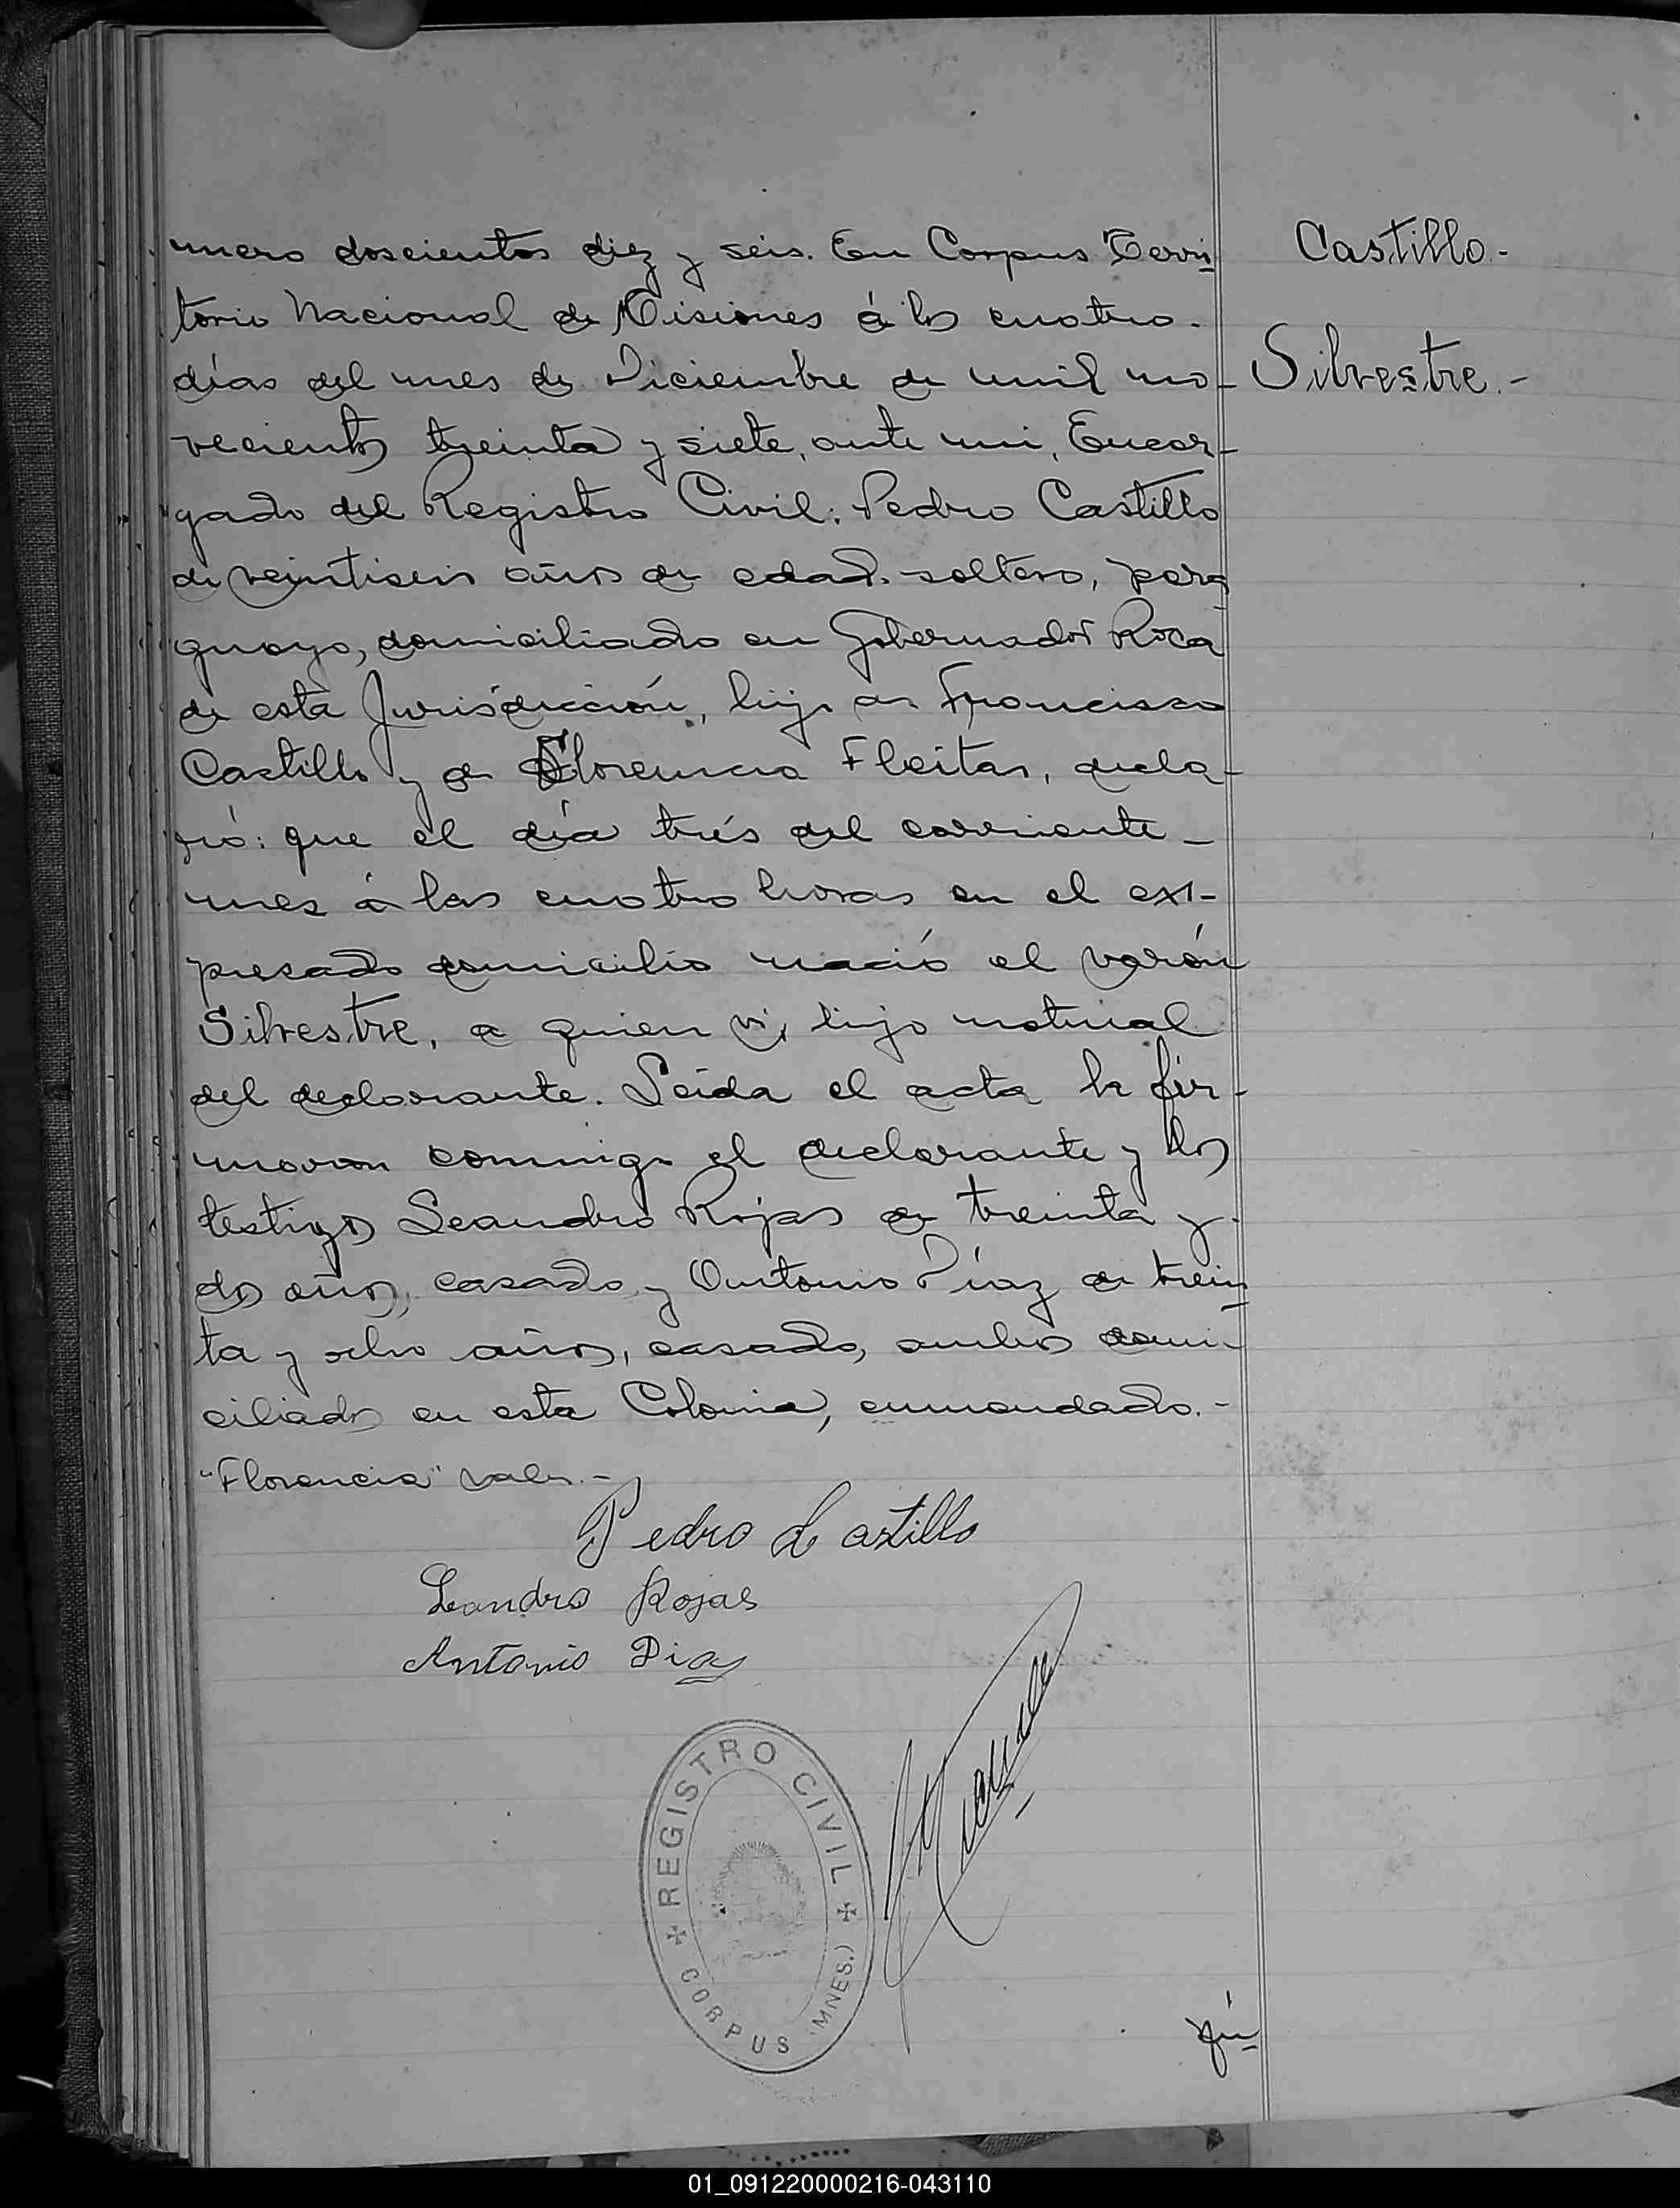 mero doscientos diez y seis. En Corpus Terri
torio Nacional de Misiones á los cuatro.
días del mes de Diciembre de mil no-
vecientos treinta y siete, ante mi, Encar-
gado del Registro Civil: Pedro Castillo
de veintiseis años de edad. soltero, para
guayo, domiciliado en Gobernador Roca
de esta Jurisdicción, hijo de Francisco
Castillo y de Florencia Fleitas, decla-
ró: que el día trés del corriente -
mes á las cuatro horas en el ex-
presado domicilio nació el varón
Silvestre, a quien vi, hijo natural
del declarante. Leida el acta la fir-
maron conmigo el declarante y los
testigos Leandro Rojas de treinta y
dos años, casado, y Antonio Diaz de trein
ta y ocho años, casado, ambos domi-
ciliados en esta Colonia, enmendado.-
"Florencia" vale.-
Castillo.-
Silvestre.-
Pedro Castillo
Leandro Rojas
Antonio Diaz
REGISTRO CIVIL
CORPUS (MNES.)
01_091220000216-043110